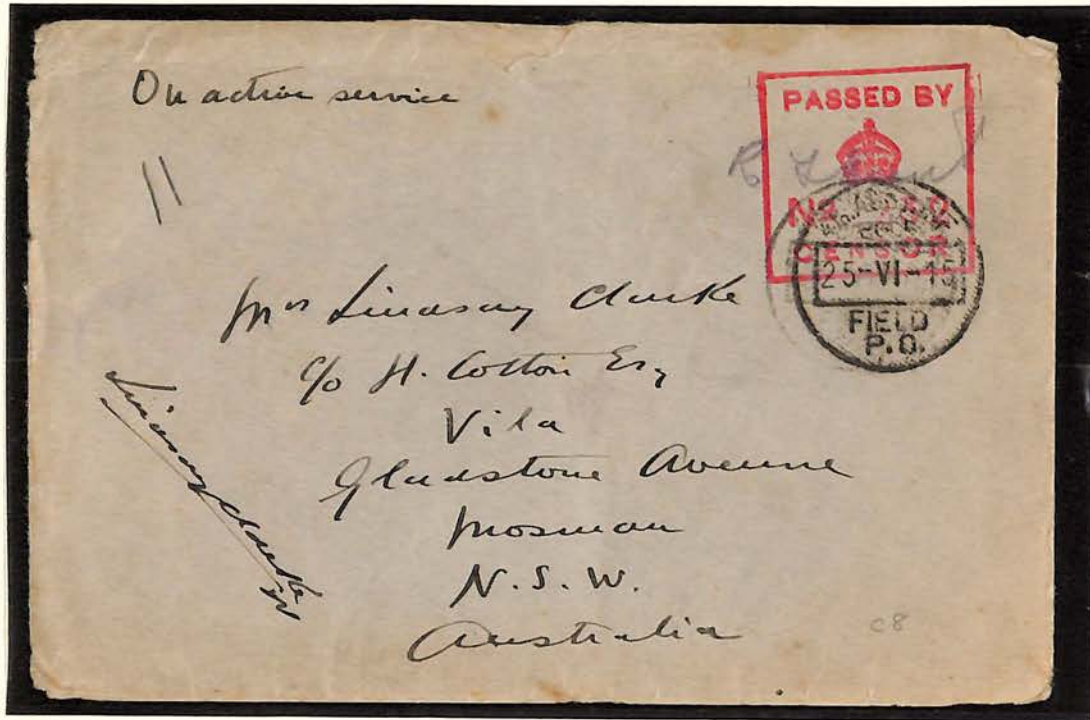 On active service
11
PASSED BY
No
CENSOR
25-VI-15
FIELD
P.O.
Mrs Lindsay Clarke
c/o H. Cotton Esq
Vila
Gladstone Avenue
Mosman
N.S.W.
Australia
Lindsay Clarke
C8